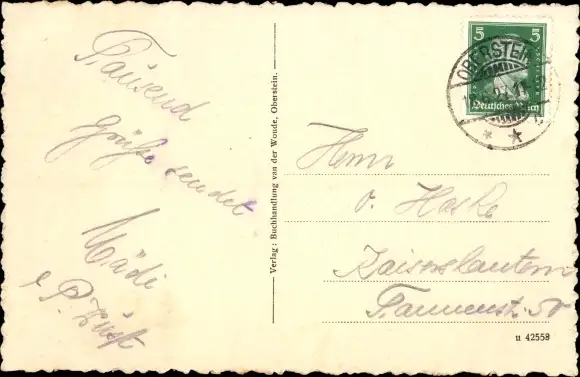 Tausend
Grüße sendet
Mädi
Verlag: Buchhandlung van der Woude, Oberstein.
5 5
Deutsches Reich
OBERSTEIN
Herrn
O. Haske
Kaiserslautern
Tannenstr. 50
u 42558